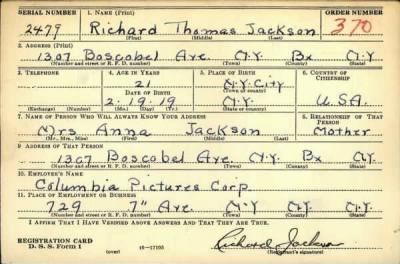 SERIAL NUMBER 1. NAME (Print) ORDER NUMBER
2479 Richard Thomas Jackson 370
(First) (Middle) (Last)
2. ADDRESS (Print)
1307 Boscobel Ave. N.Y. Bx N.Y
(Number and street or R. F. D. number) (Town) (County) (State)
3. TELEPHONE 4. AGE IN YEARS 5. PLACE OF BIRTH 6. COUNTRY OF CITIZENSHIP
21 N.Y. City
DATE OF BIRTH (Town or county)
2-19-19 N.Y. U.S.A.
(Exchange) (Number) (Mo.) (Day) (Yr.) (State or country)
7. NAME OF PERSON WHO WILL ALWAYS KNOW YOUR ADDRESS 8. RELATIONSHIP OF THAT PERSON
Mrs Anna Jackson Mother
(Mr., Mrs., Miss) (First) (Middle) (Last)
9. ADDRESS OF THAT PERSON
1307 Boscobel Ave. N.Y. Bx N.Y.
(Number and street or R. F. D. number) (Town) (County) (State)
10. EMPLOYER'S NAME
Columbia Pictures Corp.
11. PLACE OF EMPLOYMENT OR BUSINESS
729 7" Ave. N-Y N.Y. N.Y.
(Number and street or R. F. D. number) (Town) (County) (State)
I AFFIRM THAT I HAVE VERIFIED ABOVE ANSWERS AND THAT THEY ARE TRUE.
REGISTRATION CARD
D. S. S. FORM 1 (over) 16-17105 Richard Jackson
(Registrant's signature)